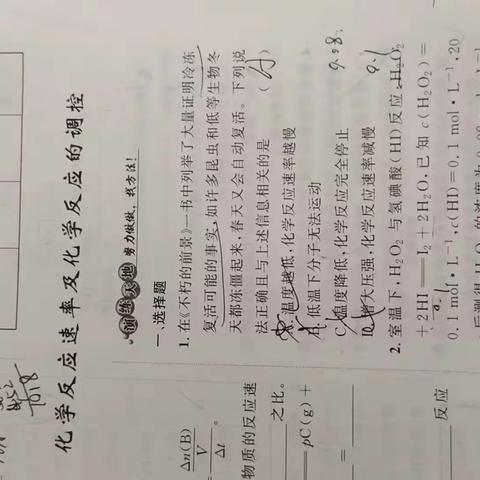 化学反应速率及化学反应的调控
演练天地 努力做做，找方法！
一、选择题
1. 在《不朽的前景》一书中列举了大量证明冷冻
复活可能的事实，如许多昆虫和低等生物冬
天都冻僵起来，春天又会自动复活。下列说
法正确且与上述信息相关的是 (A)
温度越低，化学反应速率越慢
低温下分子无法运动
C. 温度降低，化学反应完全停止
D. 增大压强，化学反应速率减慢
2. 室温下，H₂O₂ 与氢碘酸(HI)反应：H₂O₂
+2HI══I₂+2H₂O，已知 c(H₂O₂)=
0.1 mol·L⁻¹，c(HI)=0.1 mol·L⁻¹，20
Δn(B)
V
Δt
。
物质的反应速
之比。
pC(g)+
=
反应